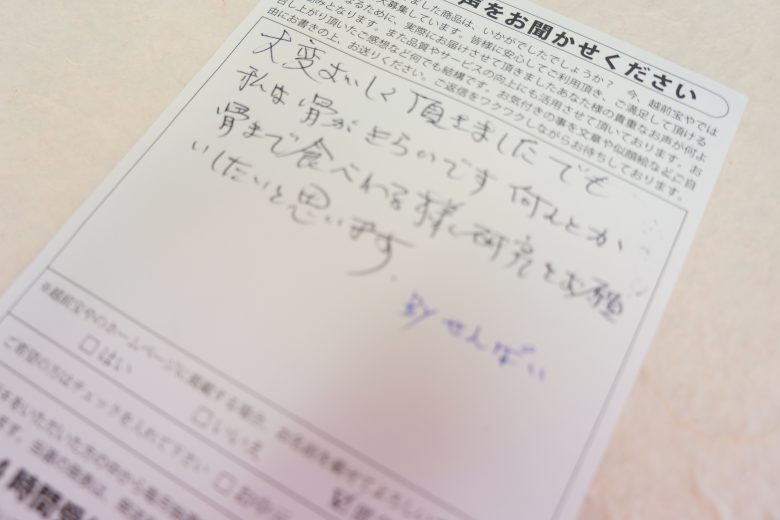 声をお聞かせください
ました商品は、いかがでしたでしょうか？　今、越前宝やでは
大募集しています。皆様に安心してご利用頂き、ご満足して頂ける
なるために、実際にお届けさせて頂きましたあなた様の貴重なお声が何よ
みとなります。また品質やサービスの向上にも活用させて頂いております。お
召し上がり頂いたご感想など何でも結構です。お気付きの事を文章や似顔絵などご自
由にお書きの上、お送りください。ご返信をワクワクしながらお待ちしております。
大変おいしく 頂きました でも
私は 骨が きらいです 何んとか
骨まで食べれる様に研究をお願
いしたいと思います.
せんべい
※越前宝やのホームページに掲載する場合、お名前を載せてよろしい
□はい
□いいえ
ご希望の方はチェックを入れて下さい
時間受